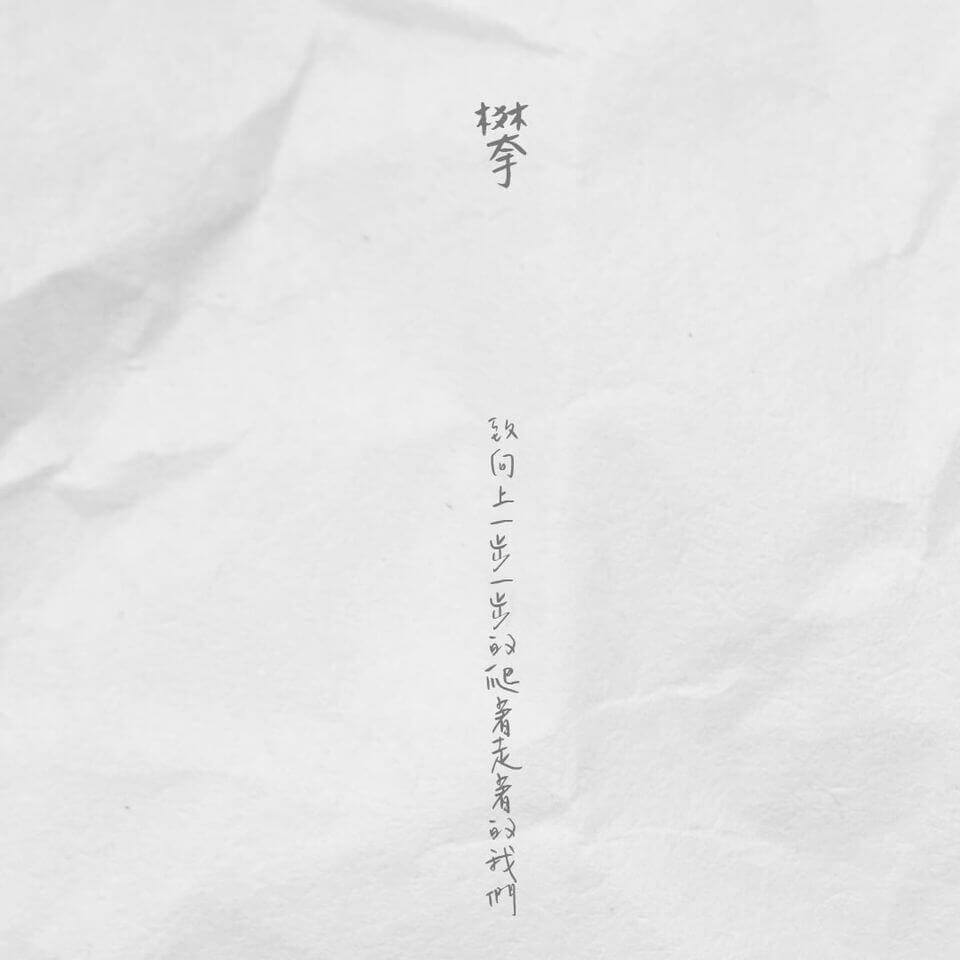 攀
致向上一步一步的爬著走著的我們